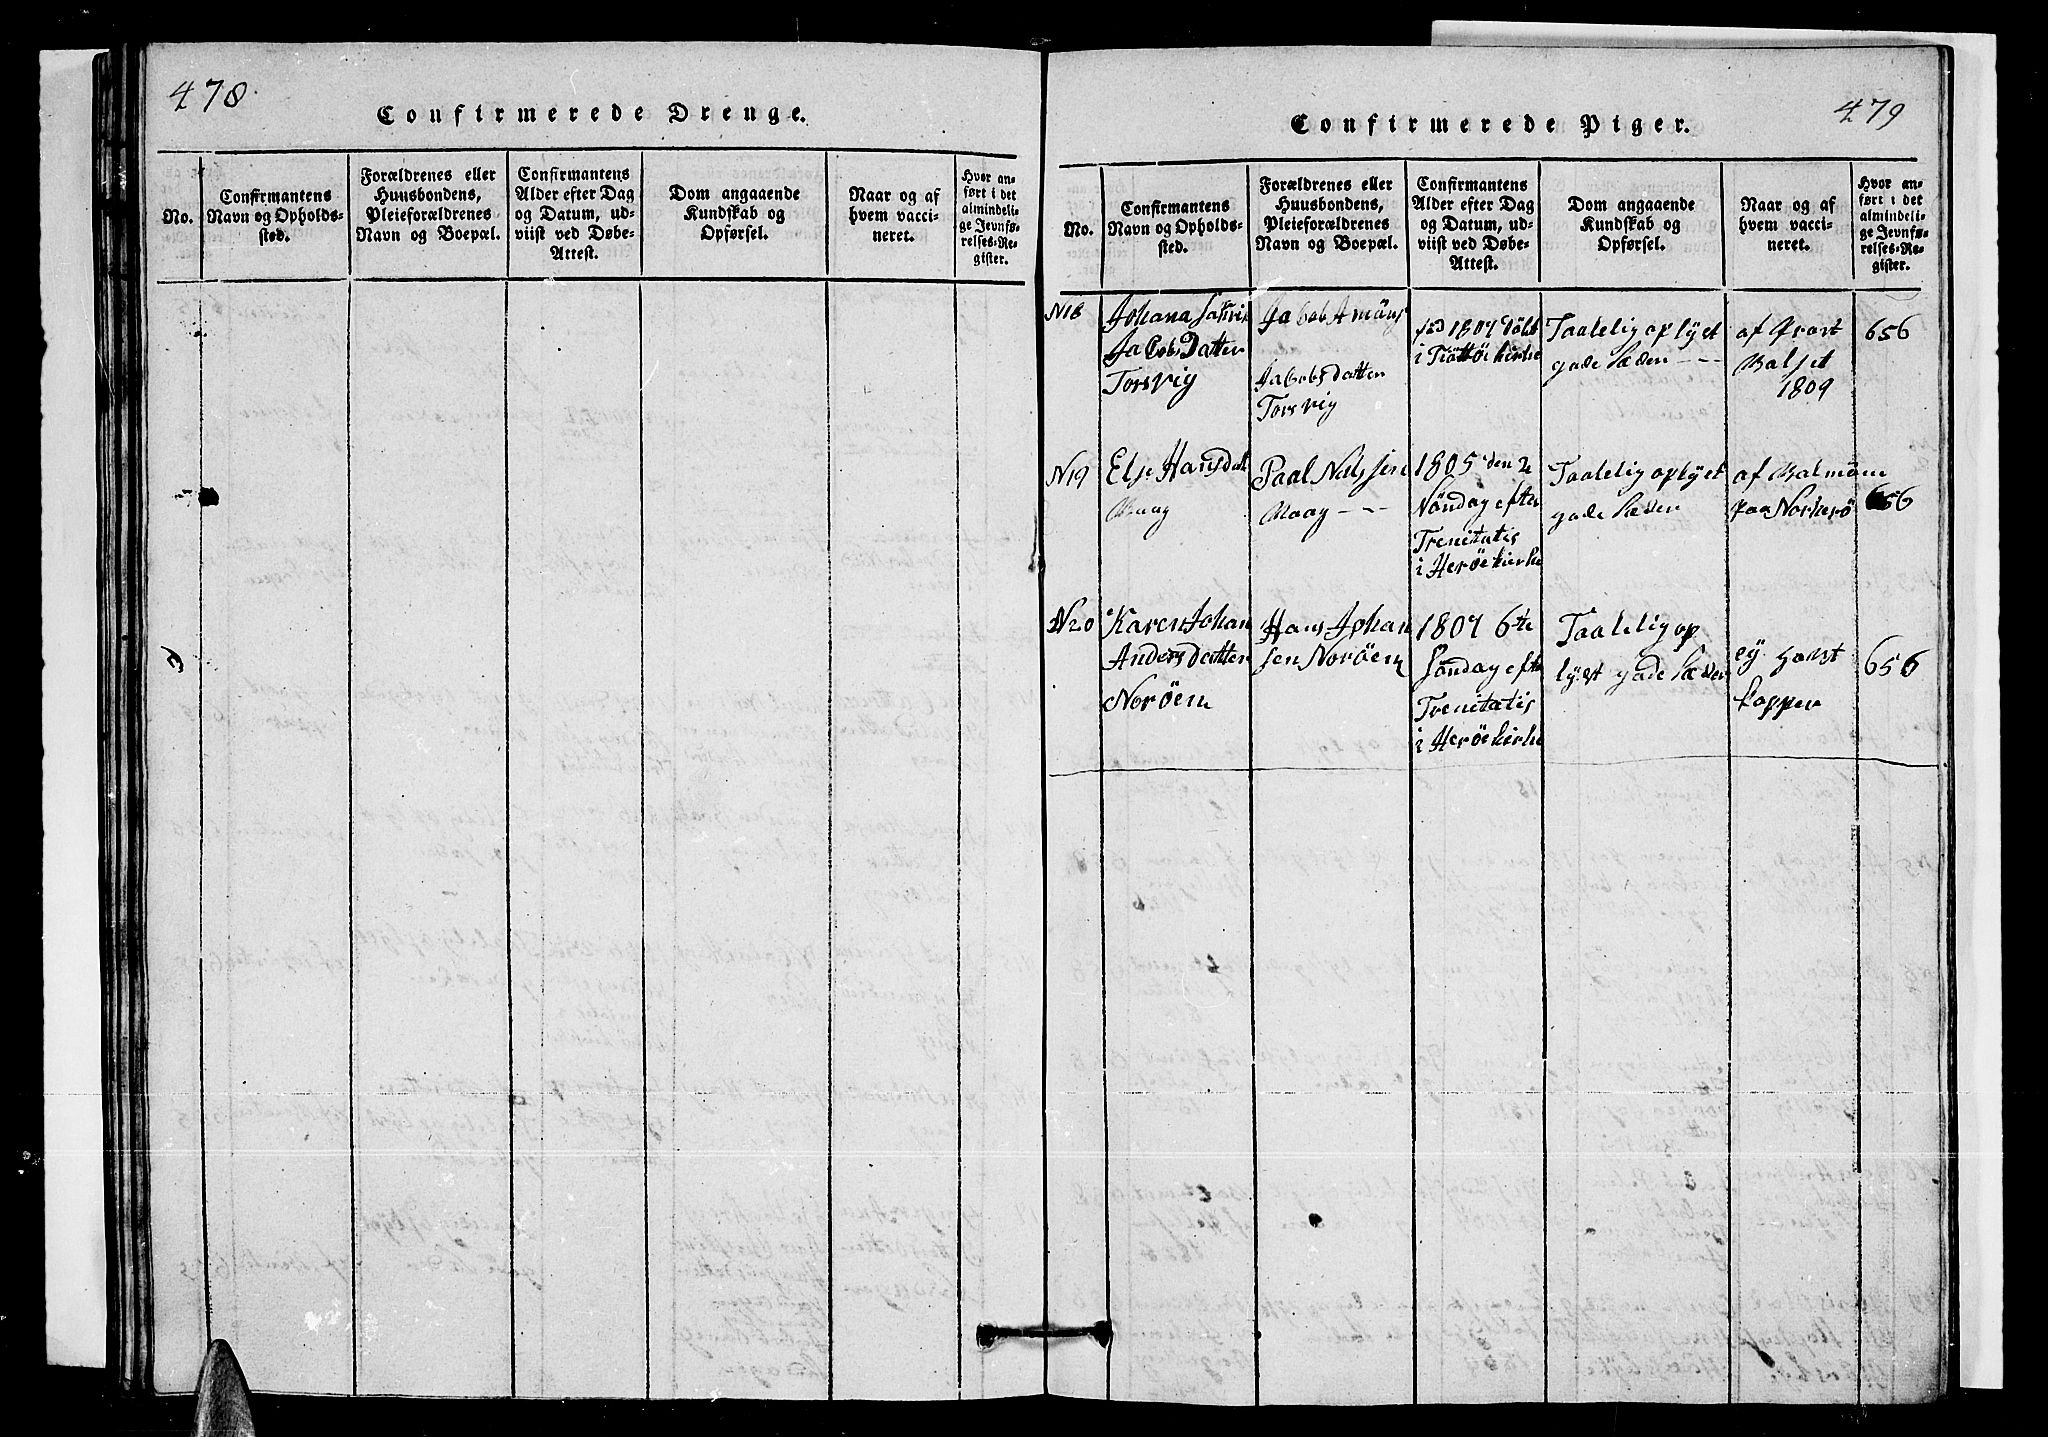 478.
Confirmerede Drenge.
No.
Confirmantens
Navn og Opholds-
sted.
Forældrenes eller
Huusbondens,
Pleieforældrenes
Navn og Boepæl.
Confirmantens
Alder efter Dag
og Datum, ud-
viist ved Døbe-
Attest.
Dom angaaende
Kundskab og
Opførsel.
Naar og af
hvem vacci-
neret.
Hvor an-
ført i det
almindeli-
ge Jevnfø-
relses-Re-
gister.
479
Confirmerede Piger.
No.
Confirmantens
Navn og Opholds-
sted.
Forældrenes eller
Huusbondens,
Pleieforældrenes
Navn og Boepæl.
Confirmantens
Alder efter Dag
og Datum, ud-
viist ved Døbe-
Attest.
Dom angaaende
Kundskab og
Opførsel.
Naar og af
hvem vacci-
neret.
Hvor an-
ført i det
almindeli-
ge Jevnfø-
relses-Re-
gister.
N18
Johana
JacobsDatter
Torsvig
Jacob
Jacobsdatter
Torsvig
1807 døbt
i Tiøttøe kirke
Taalelig oplyst
gode Sæder
af Prost
Balset
1809
656
N19
Else Hansdatt
Waag
Paal Nilssen
Waag
1805 den 2
Søndag efter
Trenitatis
i Herøe kirke
Taalelig oplyst
gode Sæder
af
paa Norherø
656
N20
Karen Johan
Andersdatter
Norøen
Hans Johan
sen Norøen
1807 6te
Søndag efter
Trenitatis
i Herøe kirke
Taalelig op
lyst gode Sæder
ey havt
kopper
656